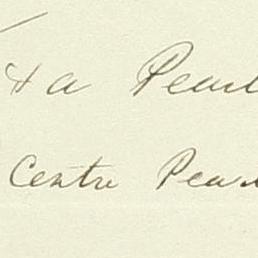 & a Pearl
Centre Pear